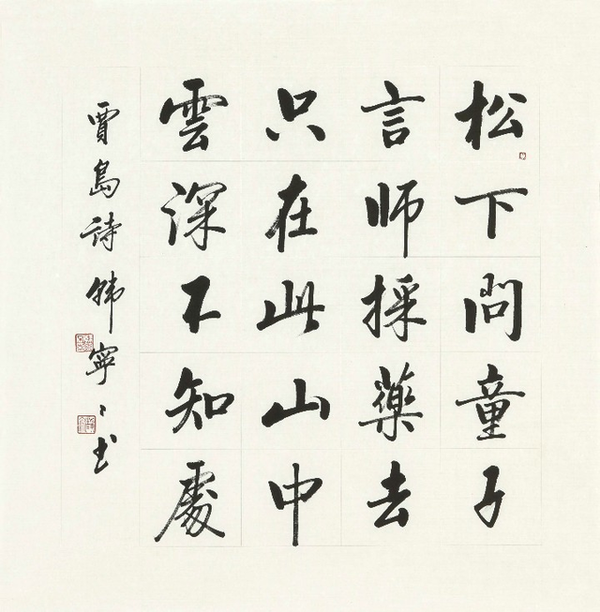 松下問童子
言師採藥去
只在此山中
雲深不知處
賈島詩韩寧〻书